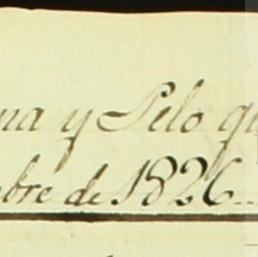 na y Pelo qu
bre de 1826